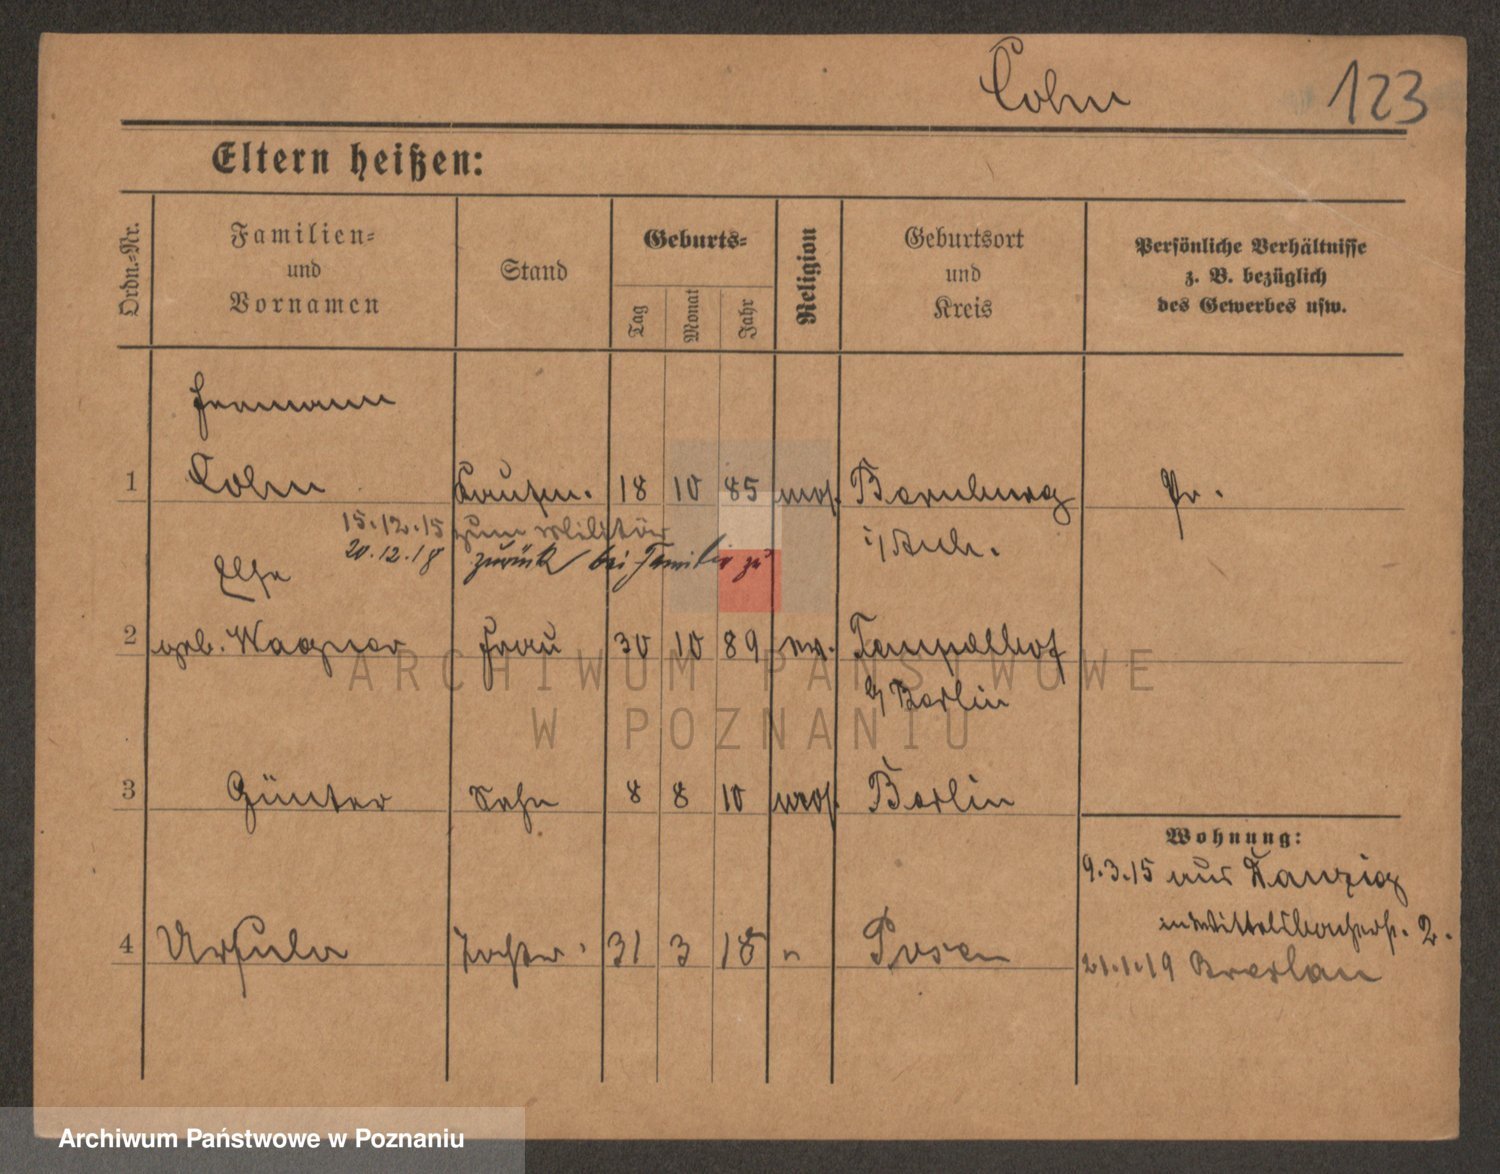 Cohn 123
Eltern heißen:
Ordn.-Nr.
Familien-
und
Vornamen
Stand
Geburts-
Tag
Monat
Jahr
Religion
Geburtsort
und
Kreis
Persönliche Verhältnisse
z. B. bezüglich
des Gewerbes usw.
Hermann
1 Cohn Kaufm. 18 10 85 mos. Bernburg Pr.
15.12.15 zum Militär
i/Anh.
20.12.18 zurück bei Familie zu
Else
2 geb. Wagner Frau 30 10 89 Tempelhof
b/ Berlin
3 Günter Sohn 8 8 10 mos. Berlin
Wohnung:
9.3.15 aus Danzig
Wittelsbacherst. 2.
4 Ursula Tochter 31 3 18 " Posen
21.1.19 Breslau
ARCHIWUM PAŃSTWOWE
W POZNANIU
Archiwum Państwowe w Poznaniu